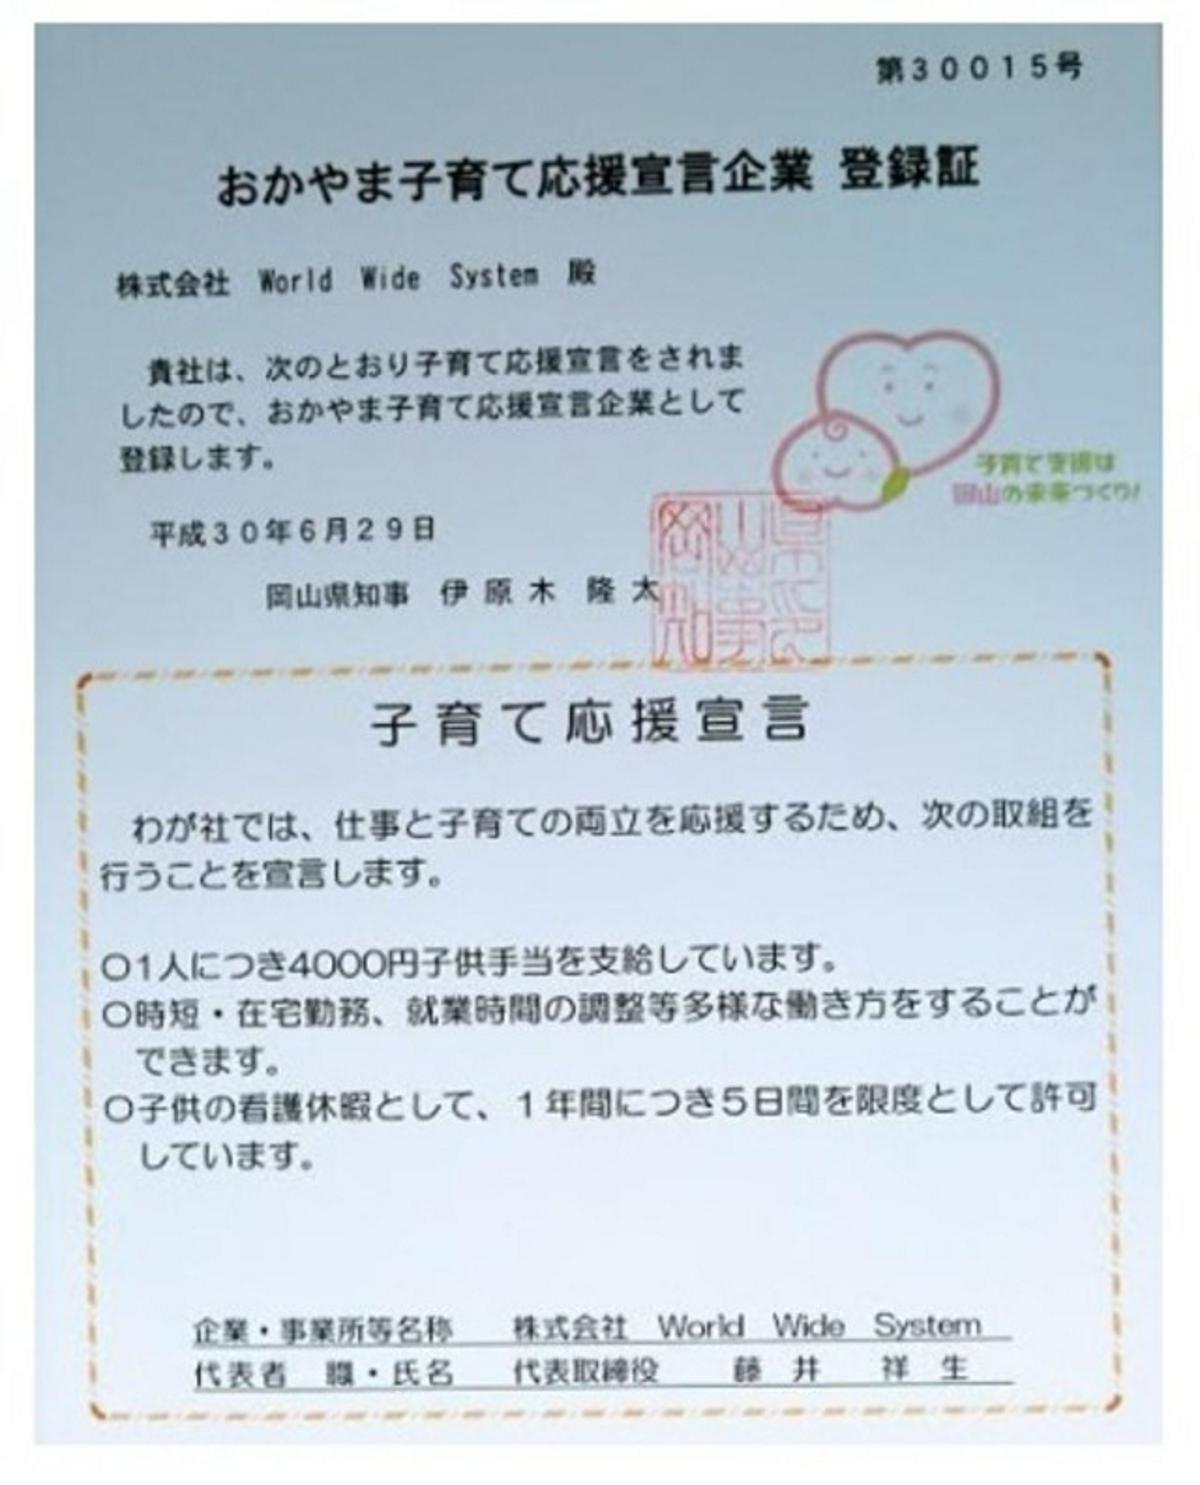 第30015号
おかやま子育て応援宣言企業 登録証
株式会社 World Wide System 殿
貴社は、次のとおり子育て応援宣言をされま
したので、おかやま子育て応援宣言企業として
登録します。
子育て支援は
岡山の未来づくり!
平成30年6月29日
岡山県知事 伊原木 隆太
子育て応援宣言
わが社では、仕事と子育ての両立を応援するため、次の取組を
行うことを宣言します。
○1人につき4000円子供手当を支給しています。
○時短・在宅勤務、就業時間の調整等多様な働き方をすることが
できます。
○子供の看護休暇として、1年間につき5日間を限度として許可
しています。
企業・事業所等名称 株式会社 World Wide System
代表者 職・氏名 代表取締役 藤井 祥生